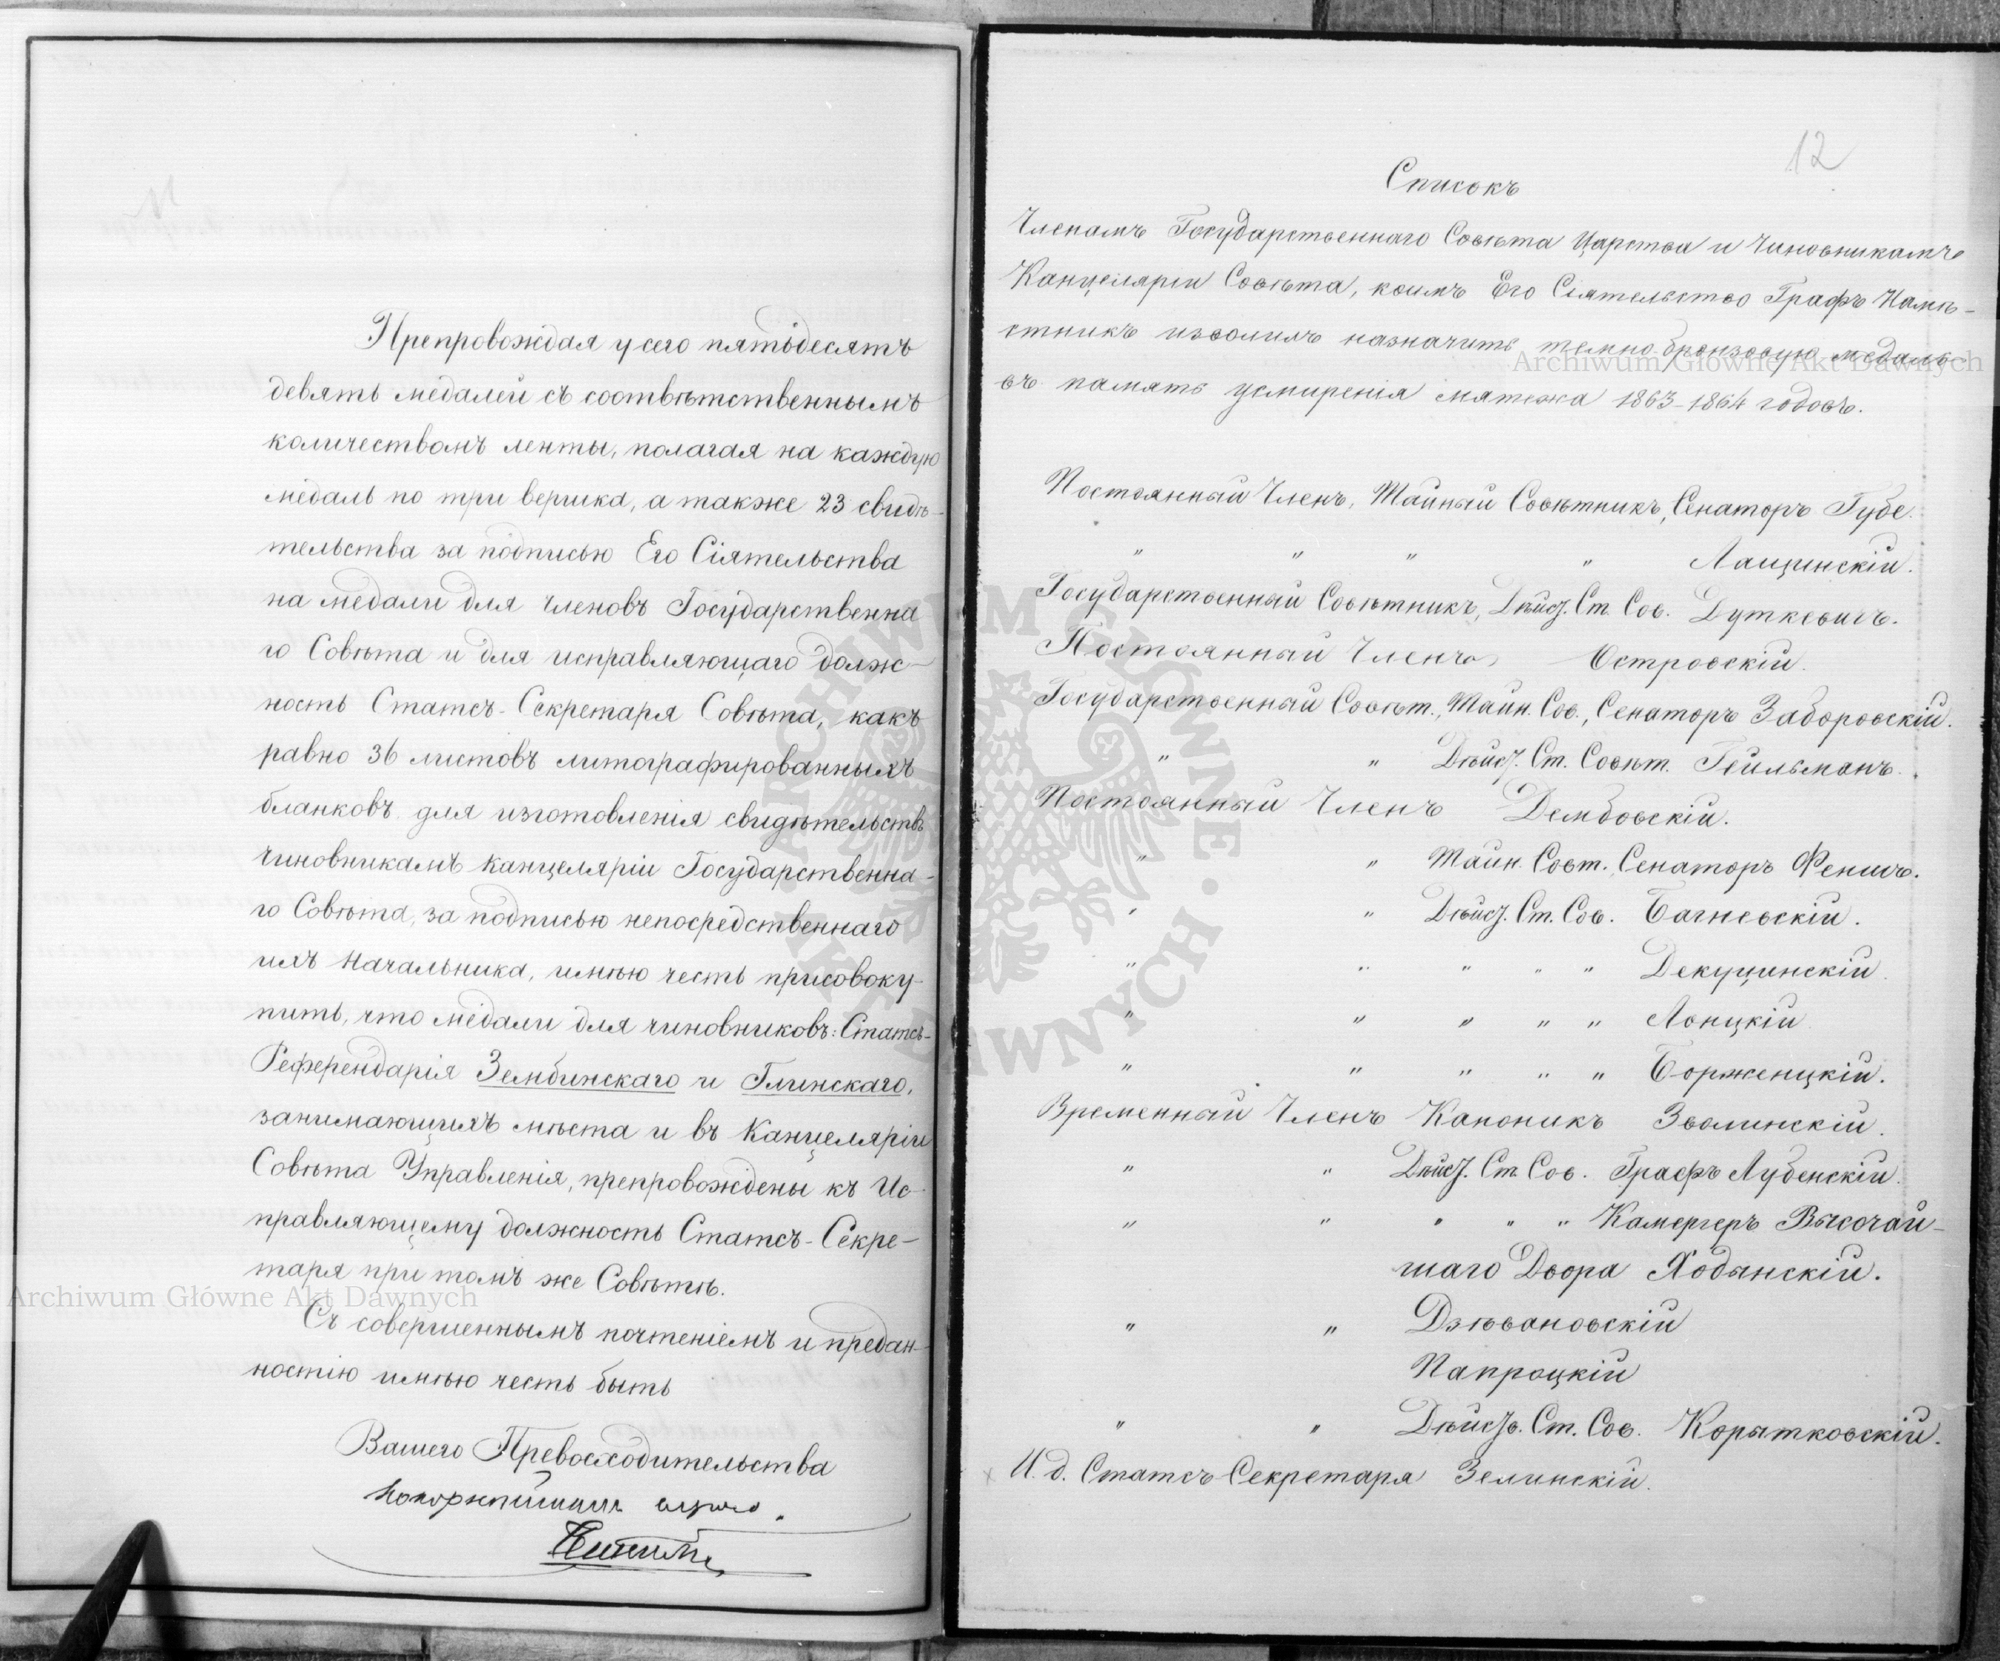 Препровождая у сего пятьдесятъ
девять медалей съ соотвѣтственнымъ
количествомъ ленты, полагая на каждую
медаль по три вершка, а также 23 свидѣ-
тельства за подписью Его Сіятельства
на медали для членовъ Государственна
го Совѣта и для исправляющаго долж-
ность Статсъ-Секретаря Совѣта, какъ
равно 36 листовъ литографированныхъ
бланковъ для изготовленія свидѣтельствъ
чиновникамъ канцеляріи Государственна-
го Совѣта, за подписью непосредственнаго
ихъ Начальника, имѣю честь присовоку-
пить, что медали для чиновниковъ: Статсъ-
Референдарія Зембинскаго и Глинскаго,
занимающихъ мѣста и въ Канцеляріи
Совѣта Управленія, препровождены къ Ис-
правляющему должность Статсъ-Секре-
таря при томъ же Совѣтѣ.
Съ совершеннымъ почтеніемъ и предан-
ностію имѣю честь быть
Вашего Превосходительства
покорнѣйшимъ слугою.
12
Списокъ
Членамъ Государственнаго Совѣта Царства и Чиновникамъ
Канцеляріи Совѣта, коимъ Его Сіятельство Графъ Намѣ-
стникъ изволилъ назначить темно-бронзовую медаль
въ память усмиренія мятежа 1863-1864 годовъ.
Постоянный Членъ, Тайный Совѣтникъ, Сенаторъ Губе.
" " " " Лащинскій.
Государственный Совѣтникъ, Дѣйст. Ст. Сов. Дуткевичъ.
Постоянный Членъ, Островскій.
Государственный Совѣт., Тайн. Сов., Сенаторъ Заборовскій.
" " Дѣйст. Ст. Совѣт. Гейльманъ.
Постоянный Членъ Дембовскій.
" " Тайн. Совт. Сенаторъ Феничъ.
" " Дѣйст. Ст. Сов. Багневскій.
" " " " " Декуцинскій
" " " " " Лонцкій
" " " " " Борженцкій.
Временный Членъ Каноникъ Зволинскій.
" " Дѣйст. Ст. Сов. Графъ Лубенскій.
" " " " " Камергеръ Высочай-
шаго Двора Ходынскій.
" " Дзѣвановскій
Папроцкій
" " Дѣйств. Ст. Сов. Корытковскій.
И. д. Статсъ Секретаря Зелинскій.
Archiwum Główne Akt Dawnych
Archiwum Główne Akt Dawnych
ARCHIWUM GŁÓWNE AKT DAWNYCH